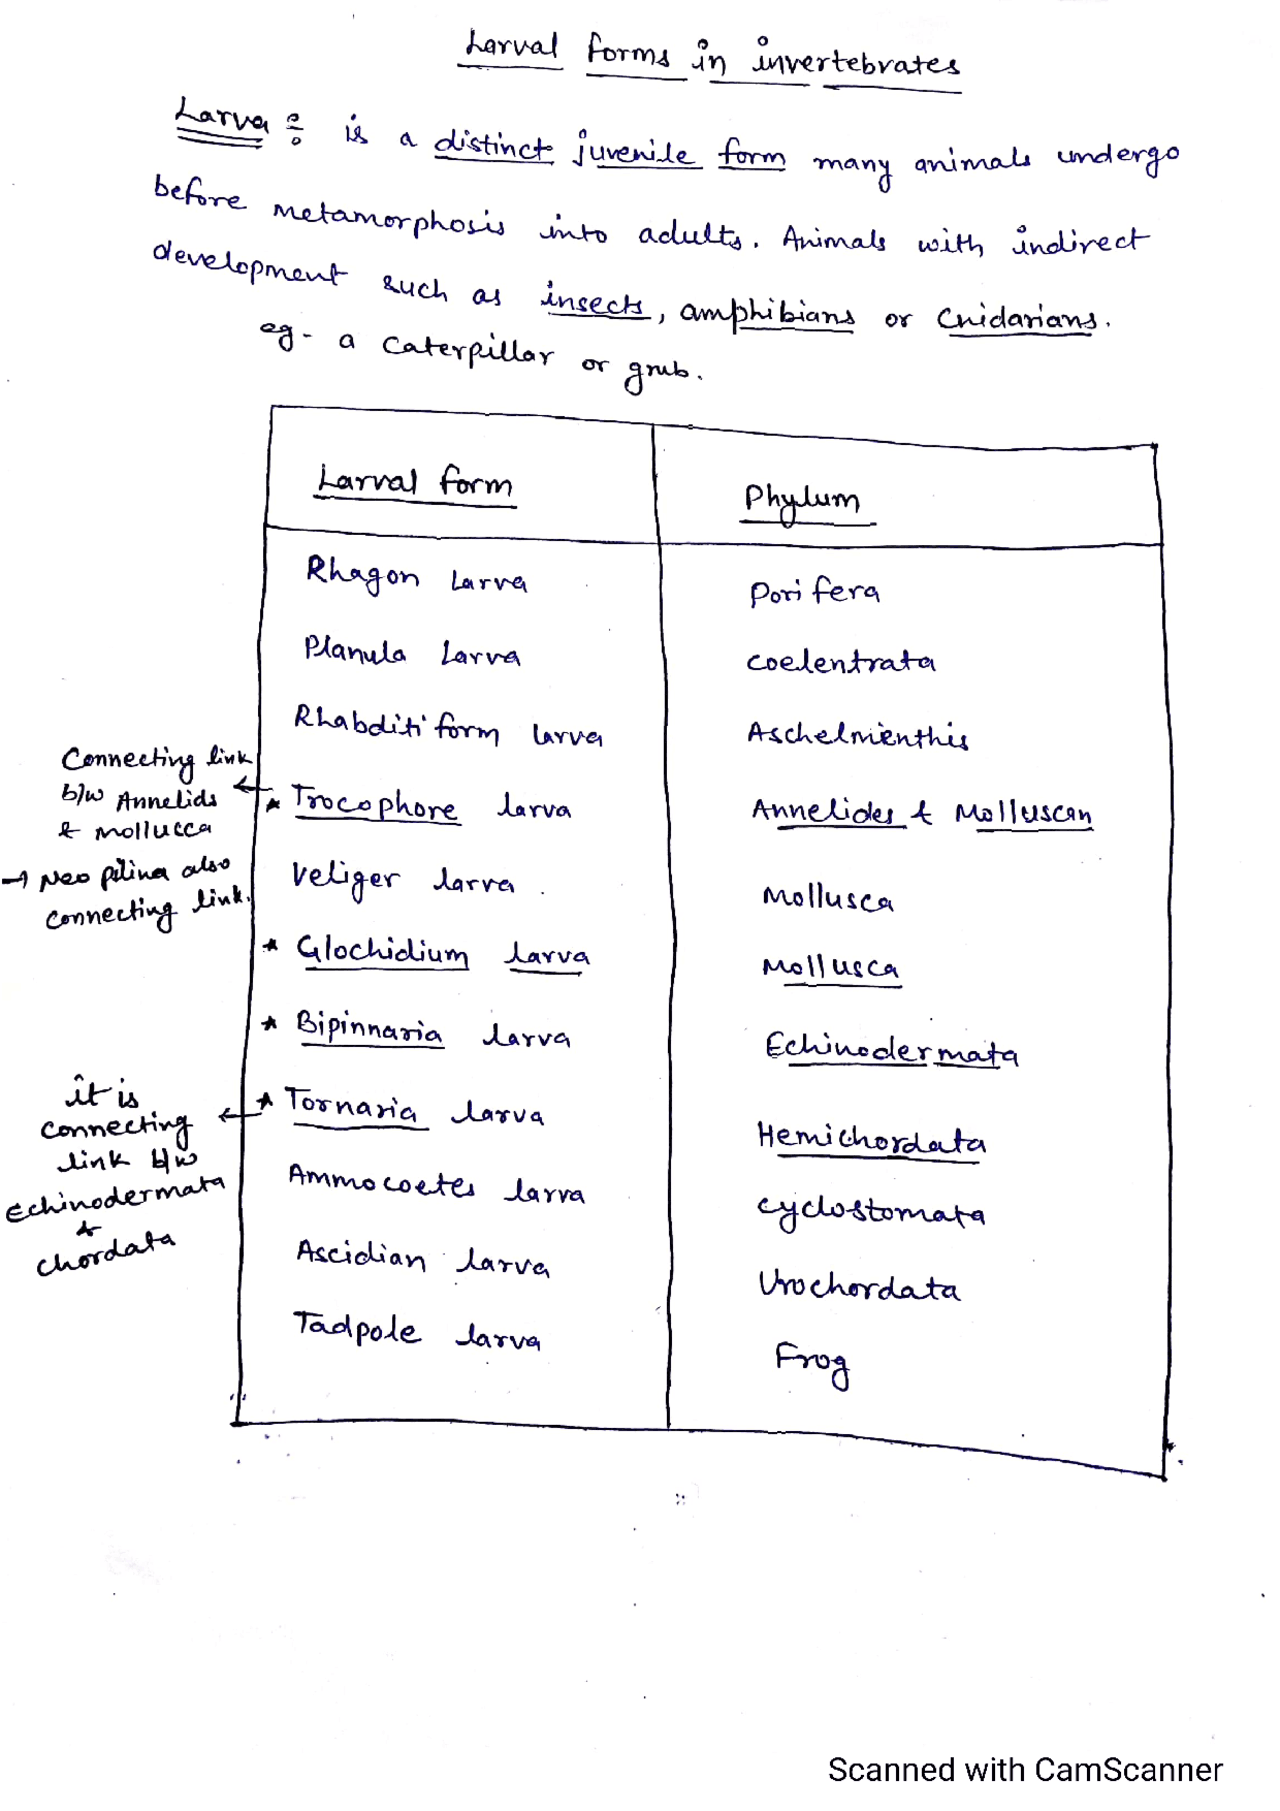 Larval forms in invertebrates
Larva : is a distinct juvenile form many animals undergo
before metamorphosis into adults. Animals with indirect
development such as insects, amphibians or Cnidarians.
eg - a caterpillar or grub.
Larval form Phylum
Rhagon Larva Porifera
Planula Larva coelentrata
Rhabditiform larva Aschelmienthis
Connecting link
b/w Annelids
& mollucca
→ Neo pilina also
connecting link.
* Trocophore larva Annelides & Molluscan
Veliger larva Mollusca
* Glochidium larva Mollusca
* Bipinnaria larva Echinodermata
it is
connecting
link b/w
Echinodermata
&
chordata
* Tornaria larva Hemichordata
Ammocoetes larva cyclostomata
Ascidian larva Urochordata
Tadpole larva Frog
Scanned with CamScanner